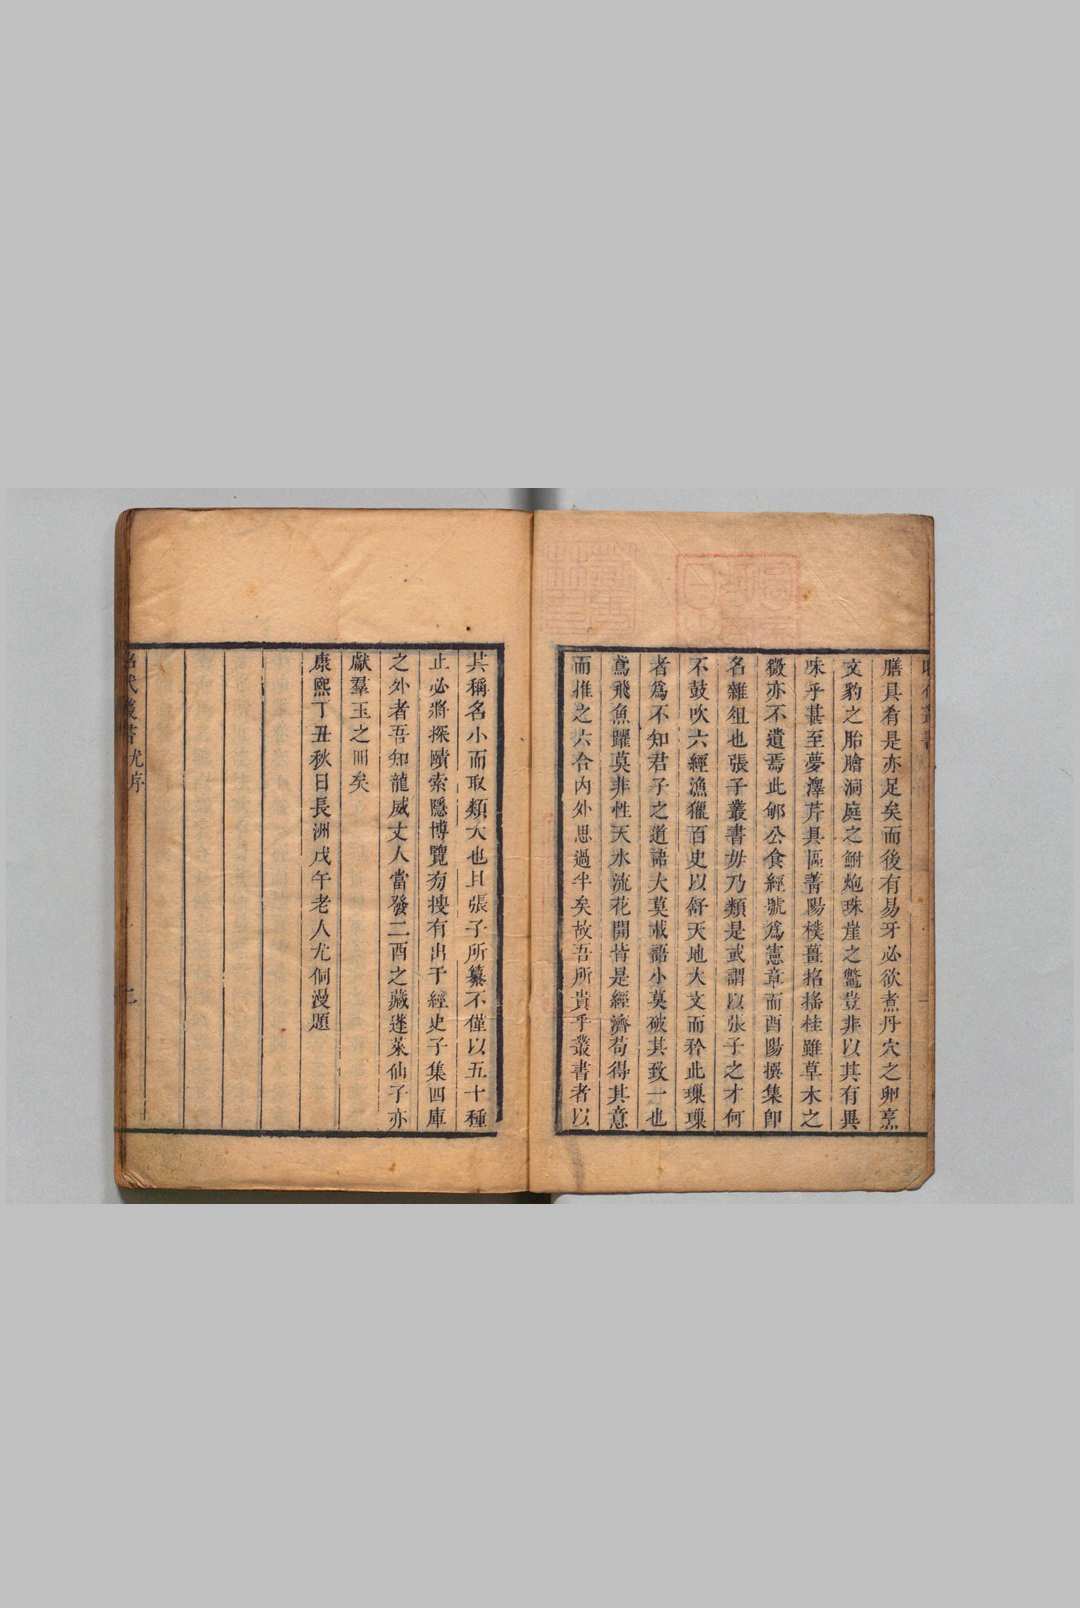 膳具肴是亦足矣而後有易牙必欲煮丹穴之卵烹
文豹之胎膾洞庭之鮒炮珠崖之鼈豈非以其有異
味乎甚至夢澤芹具區菁陽樸薑招搖桂雖草木之
微亦不遺焉此郇公食經號爲憲章而酉陽撰集卽
名雜俎也張子叢書毋乃類是或謂以張子之才何
不鼓吹六經漁獵百史以舒天地大文而矜此璅璅
者爲不知君子之道語大莫載語小莫破其致一也
鳶飛魚躍莫非性天水流花開皆是經濟苟得其意
而推之六合內外思過半矣故吾所貴乎叢書者以
其稱名小而取類大也且張子所纂不僅以五十種
止必將探賾索隱博覽旁搜有出于經史子集四庫
之外者吾知龍威丈人當發二酉之藏蓬萊仙子亦
獻羣玉之冊矣
康熙丁丑秋日長洲戊午老人尤侗漫題
昭代叢書尤序